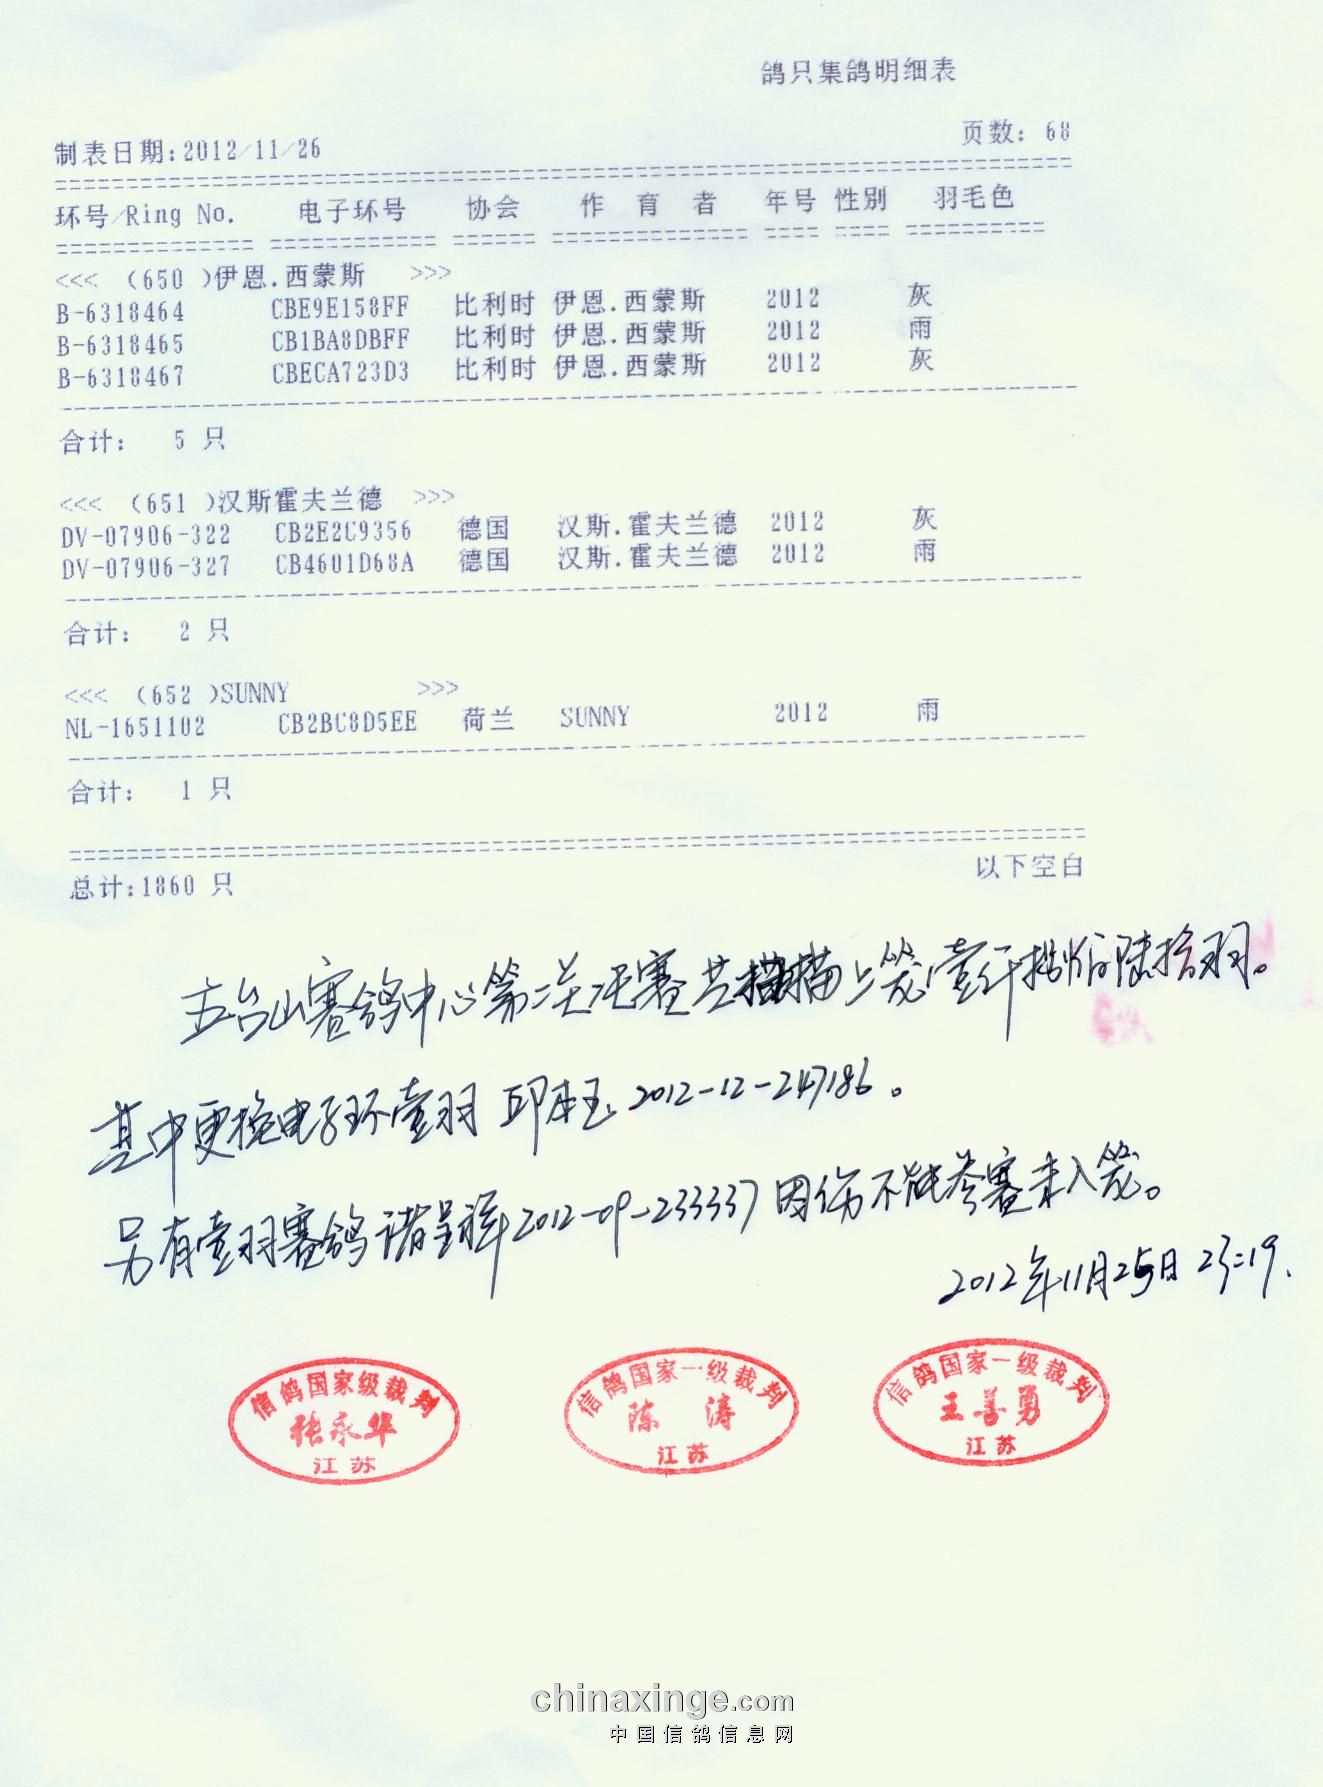 鸽只集鸽明细表
制表日期:2012/11/26 页数: 68
环号/Ring No. 电子环号 协会 作 育 者 年号 性别 羽毛色
<<< (650 )伊恩.西蒙斯 >>>
B-6318464 CBE9E158FF 比利时 伊恩.西蒙斯 2012 灰
B-6318465 CB1BA8DBFF 比利时 伊恩.西蒙斯 2012 雨
B-6318467 CBECA723D3 比利时 伊恩.西蒙斯 2012 灰
合计: 5 只
<<< (651 )汉斯霍夫兰德 >>>
DV-07906-322 CB2E2C9356 德国 汉斯.霍夫兰德 2012 灰
DV-07906-327 CB4601D68A 德国 汉斯.霍夫兰德 2012 雨
合计: 2 只
<<< (652 )SUNNY >>>
NL-1651102 CB2BC8D5EE 荷兰 SUNNY 2012 雨
合计: 1 只
以下空白
总计:1860 只
五台山赛鸽中心第二关决赛共扫描上笼壹仟捌佰陆拾羽。
其中更换电子环壹羽 邱本玉 2012-12-247186。
另有壹羽赛鸽 2012-09-233337因伤不能参赛未入笼。
2012年11月25日 23:19.
信鸽国家级裁判 张永华 江苏
信鸽国家一级裁判 陈涛 江苏
信鸽国家一级裁判 王善勇 江苏
chinaxinge.com
中国信鸽信息网